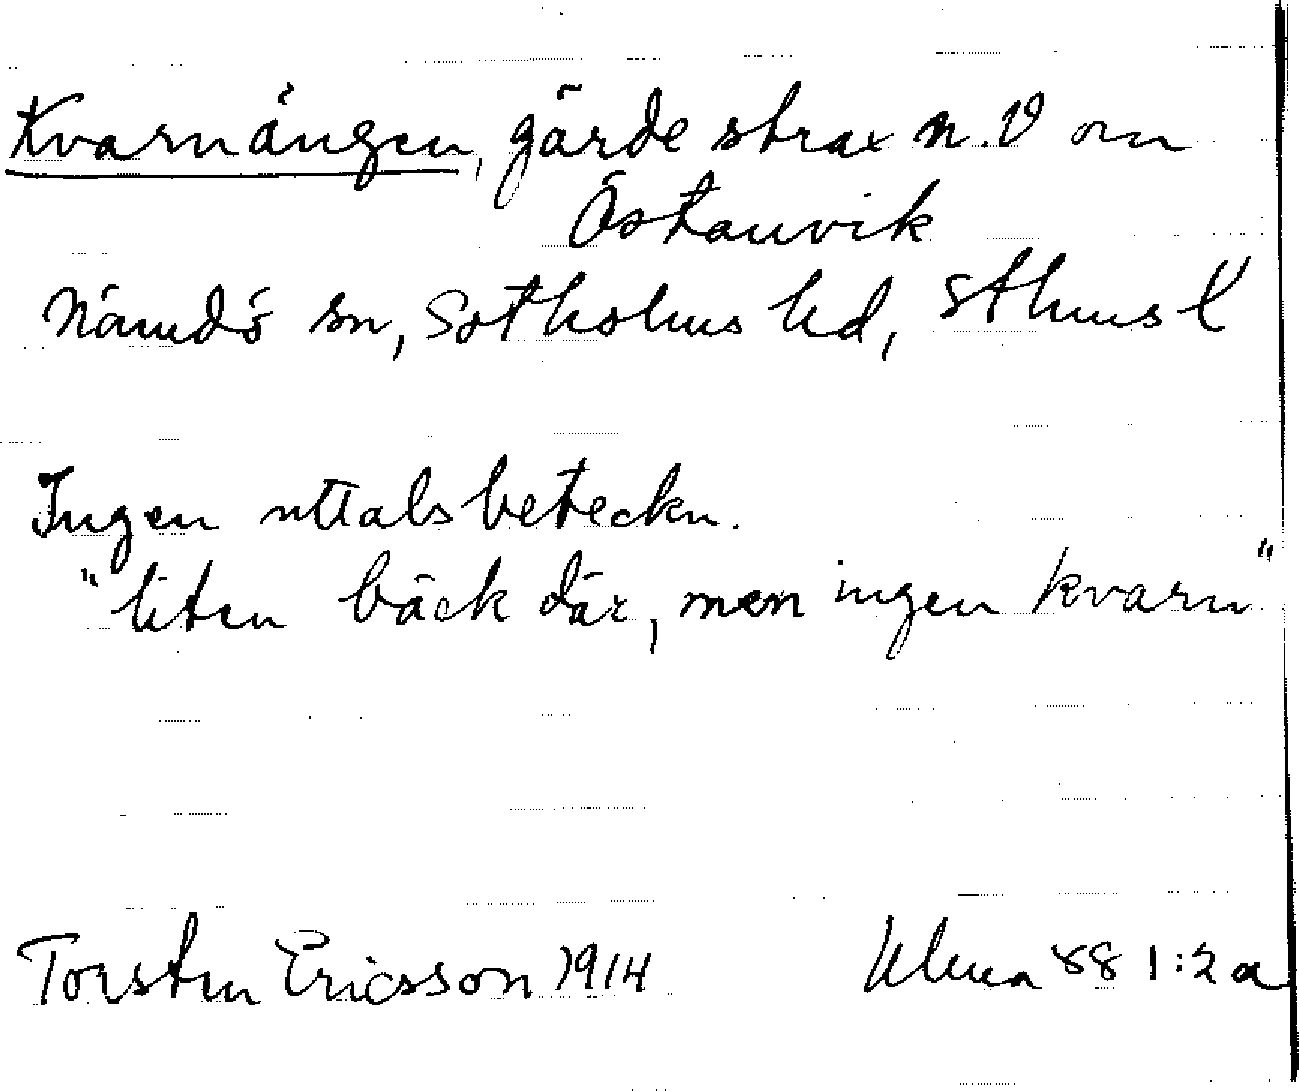 Kvarnängen, gärde strax n.V om
Östanvik
Nämdö sn, Sotholms hd, Sthms l
Ingen uttalsbeteckn.
"liten bäck där, men ingen kvarn"
Torsten Ericsson 1914 Ulma 88 1:2a